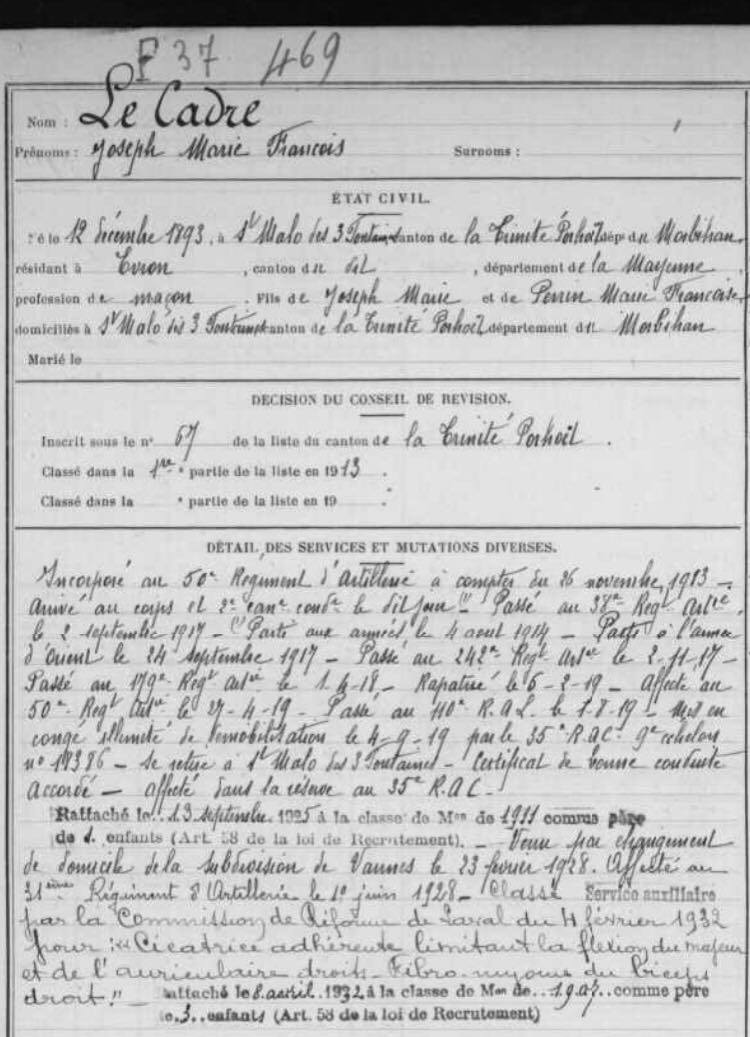 F 37 469
Nom : Le Cadre
Prénoms : Joseph Marie Francois Surnoms :
ÉTAT CIVIL.
Né le 12 décembre 1893, à St Malo des 3 Fontaines canton de la Trinité Porhoët dépt du Morbihan,
résidant à Evron, canton du dit, département de la Mayenne,
profession de maçon. Fils de Joseph Marie et de Perrin Marie Francoise,
domiciliés à St Malo des 3 Fontaines canton de la Trinité Porhoët département du Morbihan
Marié le
DECISION DU CONSEIL DE REVISION.
Inscrit sous le no 67 de la liste du canton de la Trinité Porhoët.
Classé dans la 1re partie de la liste en 1913.
Classé dans la e partie de la liste en 19 .
DÉTAIL DES SERVICES ET MUTATIONS DIVERSES.
Incorporé au 50e Régiment d'Artillerie à compter du 26 novembre 1913 –
Arrivé au corps et 2e can. cond. le dit jour (1) Passé au 38e Regt Artie
le 2 septembre 1917 – (1) Parti aux armées le 4 aout 1914 – Parti à l'armée
d'Orient le 24 septembre 1917 – Passé au 242e Regt Artie le 2-11-17 –
Passé au 179e Regt Artie le 1-4-18, – Rapatrié le 6-2-19 – Affecté au
50e Regt Artie le 27-4-19 – Passé au 110e R.A.L. le 1-8-19 – Mis en
congé illimité de démobilisation le 4-9-19 par le 35e R.A.C. 9e echelon
no – se retire à St Malo des 3 Fontaines – Certificat de bonne conduite
accordé – affecté dans la réserve au 35e R.A.C –
Rattaché le 13 septembre 1925 à la classe de Mon de 1911 comme père
de enfants (Art. 58 de la loi de Recrutement). – Venu par changement
de domicile de la subdivision de Vannes le 23 février 1928. Affecté au
31ème Régiment d'Artillerie le 1er juin 1928 – Classé Service auxiliaire
par la Commission de Réforme de Laval du 4 février 1932
pour : "Cicatrice adhérente limitant la flexion du majeur
et de l'auriculaire droits – Fibro-myome du biceps
droit." – Rattaché le 8 avril 1932 à la classe de Mon de 1907 comme père
de 3 enfants (Art. 58 de la loi de Recrutement)